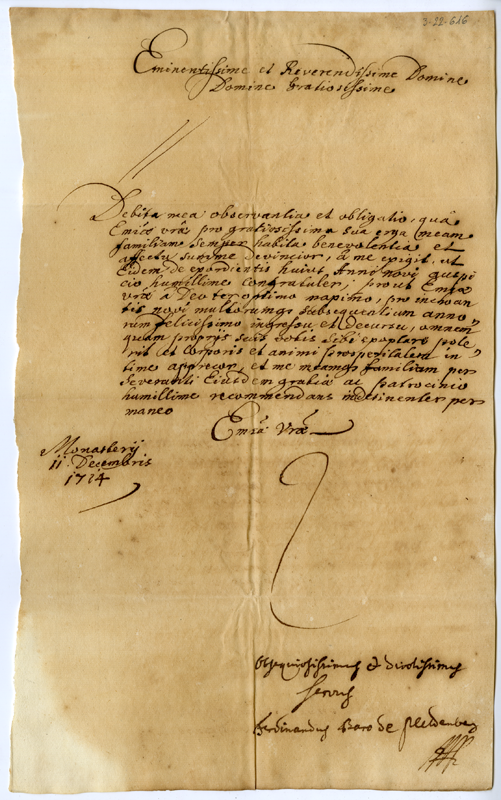 3-22-616
Eminentissime et Reverendissime Domine
Domine Gratiosissime
Debita mea observantia et obligatio, quâ
Emiæ vræ pro gratiosissima sua erga meam
familiam semper habita benevolentia et
affectu summe devincior, à me exigit, ut
Eidem de exorientis huius Anni novi auspi
cio humillime congratuler; prout Emæ
vræ à Deo ter optimo maximo, pro inchoan
tis novi multorumq subsequentium anno,
rum felicissimo ingressu et decursu, omnem
quam proprys suis votis sibi exoptare pote
rit et corporis et animi prosperitatem in
time apprecor, et me meamq familiam per
severanti Eiusdem gratiæ ac patrocinio
humillime recommendans indesinenter per
maneo
Emæ Vræ
Monasterij
11 Decembris
1714
Obsequiosissimus et devotissimus
servus
Ferdinandus Baro de Plettenberg